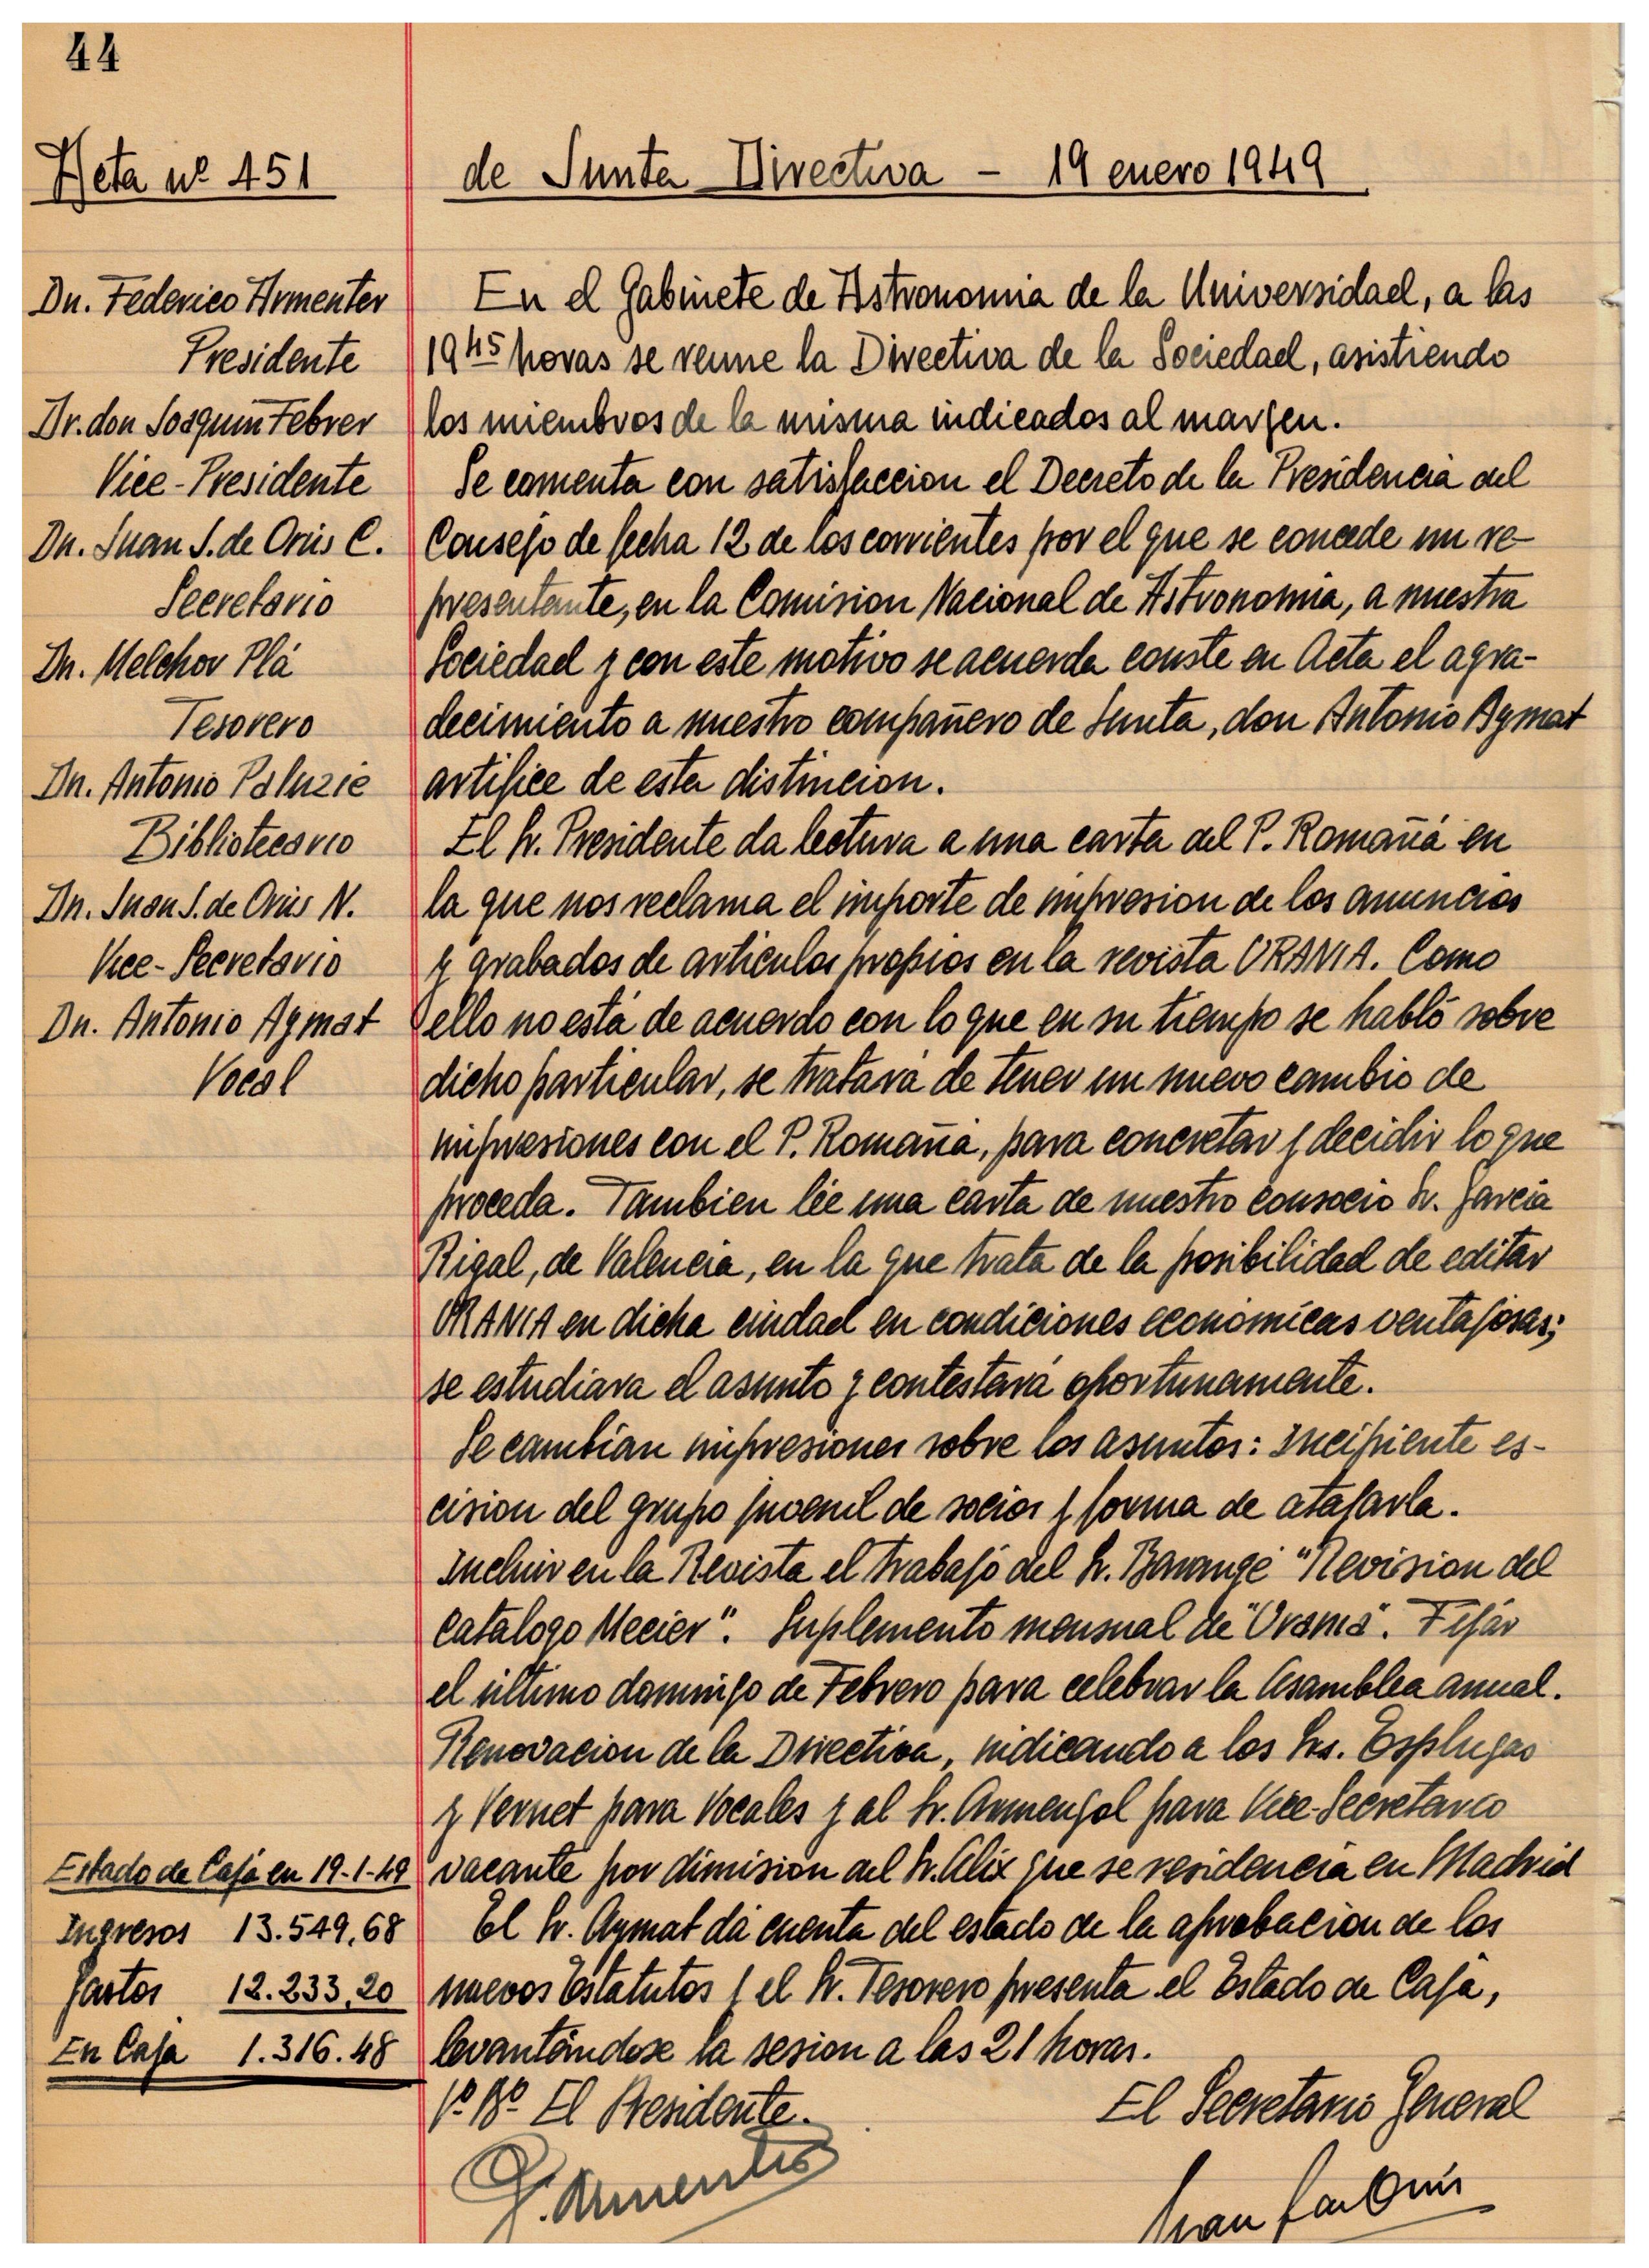 44
Acta nº 451
de Junta Directiva - 19 enero 1949
Dn. Federico Armenter
Presidente
Dr. don Joaquin Febrer
Vice-Presidente
Dn. Juan J. de Orús C.
Secretario
Dn. Melchor Plá
Tesorero
Dn. Antonio Paluzie
Bibliotecario
Dn. Juan J. de Orús N.
Vice-Secretario
Dn. Antonio Aymat
Vocal
En el Gabinete de Astronomia de la Universidad, a las
19 45 horas se reune la Directiva de la Sociedad, asistiendo
los miembros de la misma indicados al margen.
Se comenta con satisfaccion el Decreto de la Presidencia del
Consejo de fecha 12 de los corrientes por el que se concede un re-
presentante, en la Comision Nacional de Astronomia, a nuestra
Sociedad y con este motivo se acuerda conste en Acta el agra-
decimiento a nuestro compañero de Junta, don Antonio Aymat
artifice de esta distincion.
El Sr. Presidente da lectura a una carta del P. Romañá en
la que nos reclama el importe de impresion de los anuncios
y grabados de articulos propios en la revista URANIA. Como
ello no está de acuerdo con lo que en su tiempo se habló sobre
dicho particular, se tratará de tener un nuevo cambio de
impresiones con el P. Romañá, para concretar y decidir lo que
proceda. Tambien lée una carta de nuestro consocio Sr. Garcia
Rigal, de Valencia, en la que trata de la posibilidad de editar
URANIA en dicha ciudad en condiciones economicas ventajosas;
se estudiara el asunto y contestará oportunamente.
Se cambian impresiones sobre los asuntos: Incipiente es-
cision del grupo juvenil de socios y forma de atajarla.
Incluir en la Revista el trabajo del Sr. "Revision del
Catalogo Mecier". Suplemento mensual de "Urania". Fijar
el último domingo de Febrero para celebrar la Asamblea anual.
Renovacion de la Directiva, indicando a los Srs. Esplugas
y Vernet para Vocales y al Sr. Armengol para Vice-Secretario
vacante por dimision del Sr. Alix que se residencia en Madrid
El Sr. Aymat dá cuenta del estado de la aprobacion de los
nuevos Estatutos y el Sr. Tesorero presenta el Estado de Caja,
levantándose la sesion a las 21 horas.
Estado de Caja en 19-1-49
Ingresos 13.549,68
Gastos 12.233,20
En Caja 1.316.48
Vº Bº El Presidente.
El Secretario General
F. Armenter
Juan J. de Orús